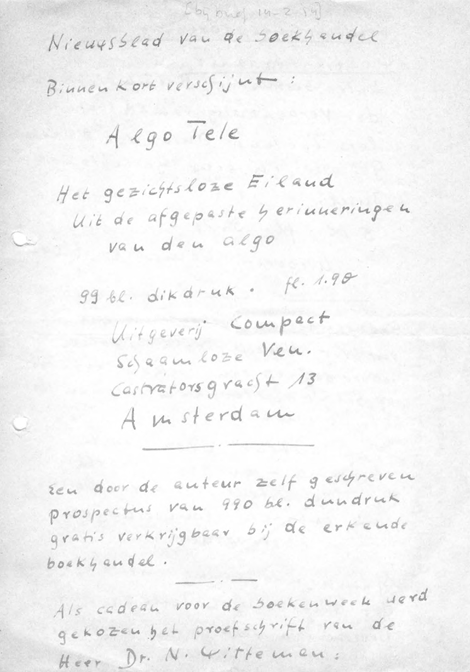 [bij brief 14-2-54]
Nieuwsblad van de boekhandel
Binnenkort verschijnt :
Algo Tele
Het gezichtsloze Eiland
Uit de afgepaste herinneringen
van den algo
99 bl. dikdruk . fl. 1.98
Uitgeverij Compact
Schaamloze Ven.
Castratorsgracht 13
Amsterdam
Een door de auteur zelf geschreven
prospectus van 990 bl. dundruk
gratis verkrijgbaar bij de erkende
boekhandel.
Als cadeau voor de boekenweek werd
gekozen het proefschrift van de
Heer Dr. N. Witteman :